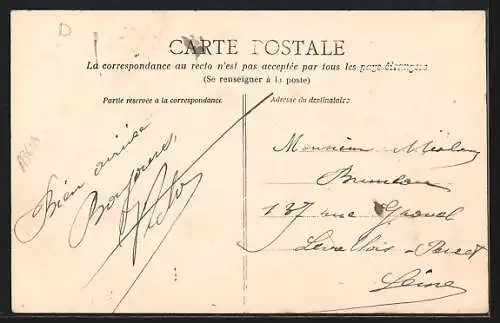 D
CARTE POSTALE
La correspondance au recto n'est pas acceptée par tous les pays étrangers
(Se renseigner à la poste)
Partie réservée à la correspondance
Adresse du destinataire
Bien arrivée
Bonjour,
Victor
Monsieur
137 rue
Levallois-Perret
Seine